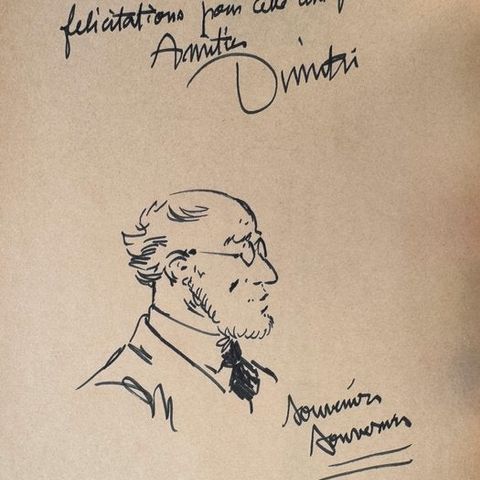 felicitations pour cette
Amitiés
Dimitri
souvenirs
souvenirs